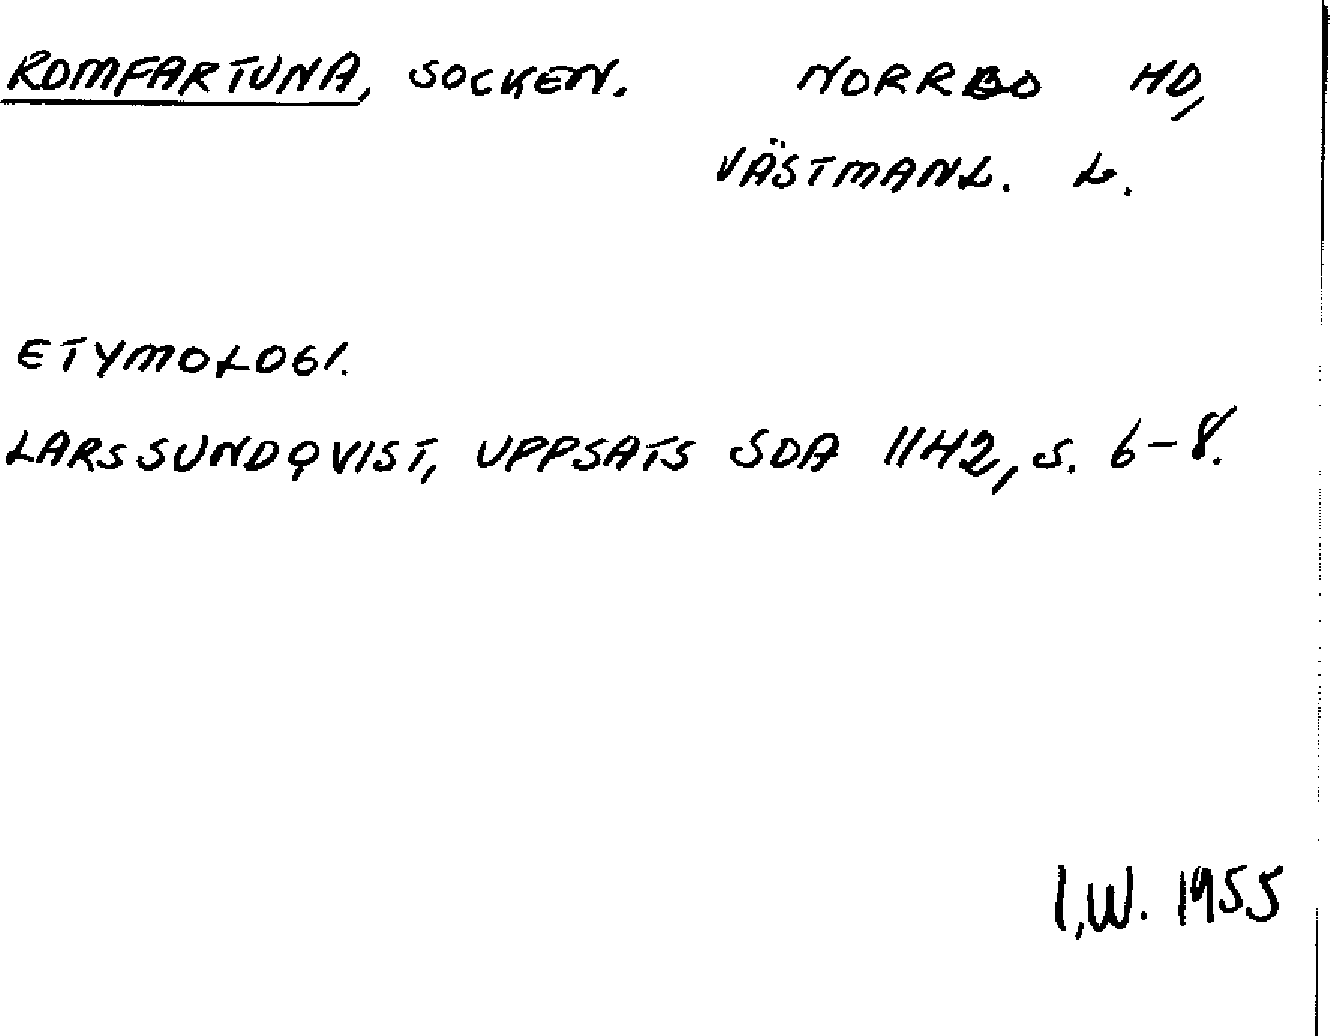 ROMFARTUNA, SOCKEN. NORRBO HD,
VÄSTMANL. L.
ETYMOLOGI.
LARS SUNDQVIST, UPPSATS SDA 11H2, S. 6-8.
I.W. 1955